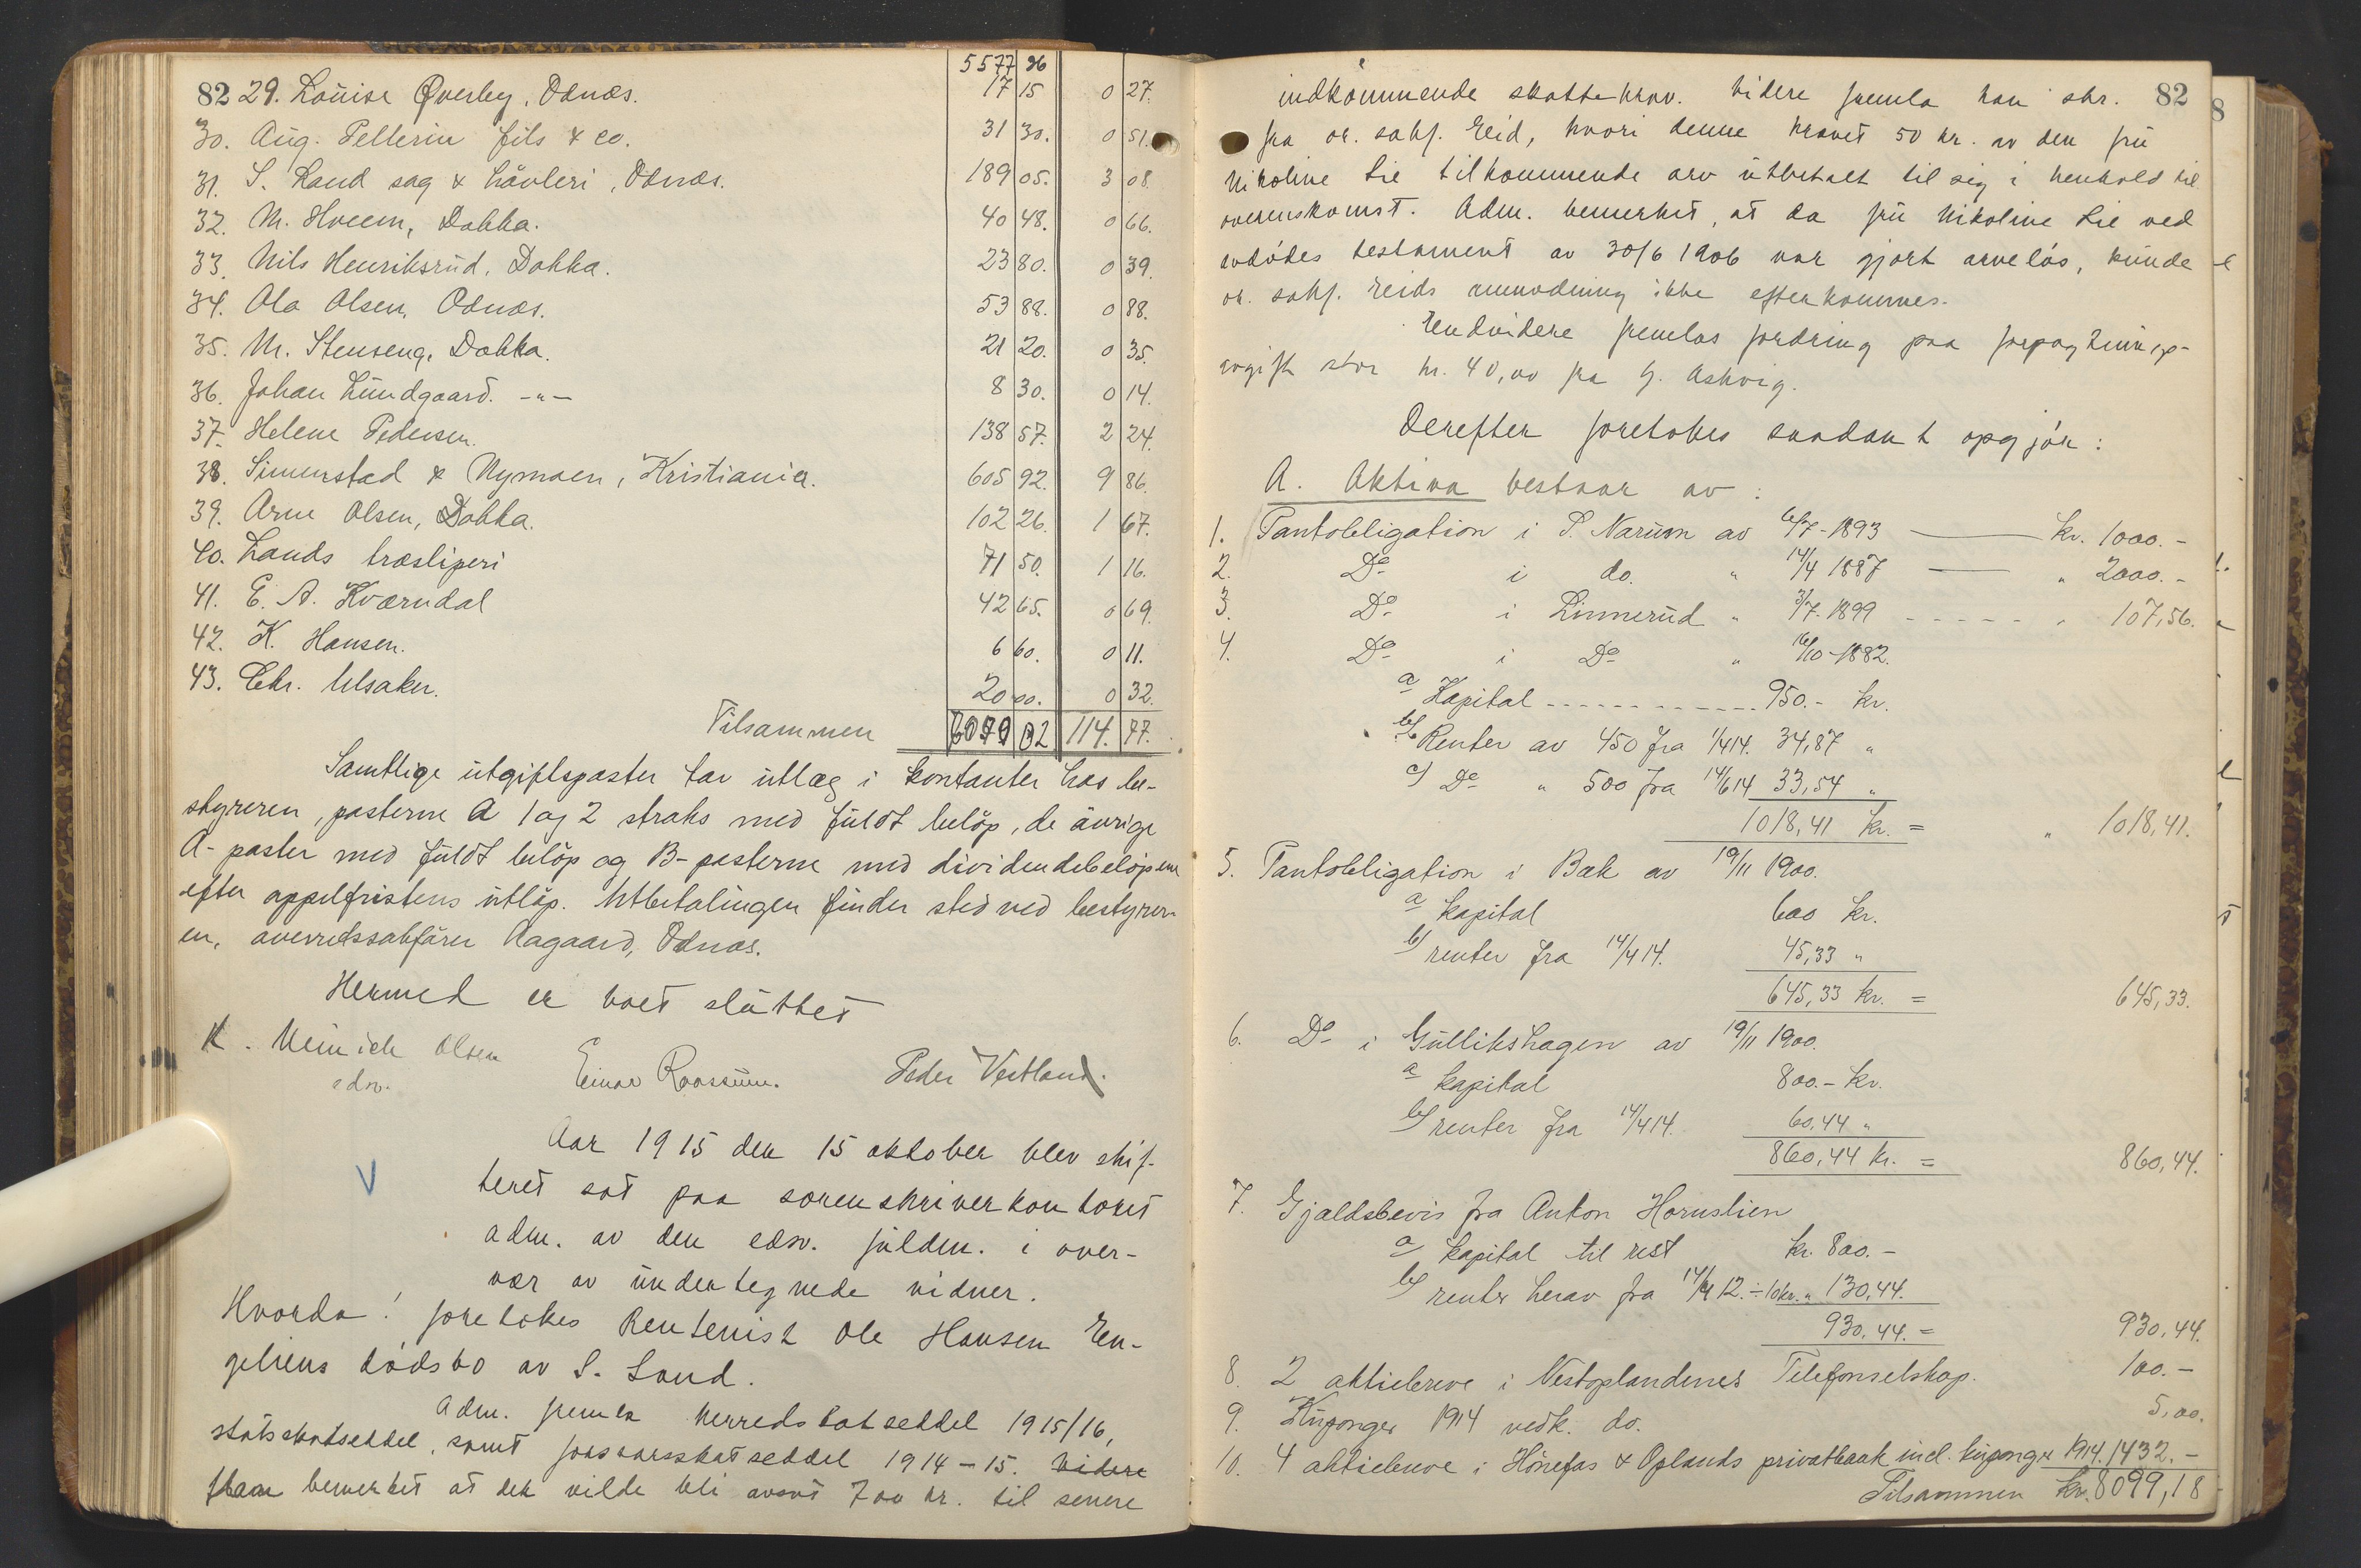 5577 26
82 29. Louise Øverby, Odnæs. 17 15 0 27.
30. Aug. Pellerin fils & co. 31 30. 0 51.
31. S. Land sag & høvleri, Odnæs. 189 05. 3 08.
32. M. Hveem, Dokka. 40 48. 0 66.
33. Nils Henriksrud, Dokka. 23 80. 0 39.
34. Ola Olsen, Odnæs. 53 88. 0 88.
35. M. Stenseng, Dokka. 21 20. 0 35.
36. Johan Lundgaard. -"- 8 30. 0 14.
37. Helene Pedersen. 138 57. 2 24.
38. Simenstad & Nymoen, Kristiania. 605 92. 9 86.
39. Arne Olsen, Dokka. 102 26. 1 67.
40. Lands træsliperi 71 50. 1 16.
41. E. A. Kværndal 42 65. 0 69.
42. K. Hansen. 6 60. 0 11.
43. Chr. Ulsaker. 20 00. 0 32.
Tilsammen 7079 02 114. 77.
Samtlige utgiftsposter tar utlæg i kontanter hos be-
styreren, posterne A 1 og 2 straks med fuldt beløp, de øvrige
A-poster med fuldt beløp og B-posterne med dividendebeløpene
efter appelfristens utløp. Utbetalingen finder sted ved bestyrer-
en, overretssakfører Aagaard, Odnæs.
Hermed er boet sluttet
K. Meinich Olsen
edsv. Einar Roossum. Peder Vestland.
Aar 1915 den 15 oktober blev skif-
teret sat paa sorenskriverkontoret
adm. av den edsv. fuldm. i over-
vær av undertegnede vidner.
Hvorda! foretokes Rentenist Ole Hansen En-
geliens dødsbo av S. Land.
Adm. fremla herredskatseddel 1915/16,
statsskatseddel, samt forsvarsskatseddel 1914-15. Videre
Han bemerket at der vilde bli avsat 700 kr. til senere
indkommende skattekrav. Videre fremla han skr. 82
fra or. sakf. Reid, hvori denne krævet 50 kr. av den fru
Nikoline Lie tilkommende arv utbetalt til sig i henhold til
overenskomst. Adm. bemerket, at da fru Nikoline Lie ved
avdødes testament av 30/6 1906 var gjort arveløs, kunde
or. sakf. Reids anmodning ikke efterkommes.
Endvidere fremlas fordring paa forpagtnings-
avgift stor kr. 40,00 fra G. Askvig.
Derefter foretokes saadant opgjør:
A. Aktiva bestaar av:
1. Pantobligation i P. Narum av 6/7-1893 kr. 1000.-
2. Do i do. " 14/4 1887 " 2000.-
3. Do i Linnerud " 3/7-1899 " 107,56.
4. Do i Do " 16/10-1882.
a Kapital 950.- kr.
b/ Renter av 450 fra 1/4 14. 34,87 "
c/ Do " 500 fra 14/6 14 33,54 "
1018,41 kr. = " 1018,41.
5. Pantobligation i Bak av 19/11 1900.
a kapital 600 kr.
b/ renter fra 14/4 14. 45,33 "
645,33 kr. = 645,33.
6. Do i Gullikshagen av 19/11 1900.
a kapital 800.- kr.
b/ renter fra 14/4 14. 60,44 "
860,44 kr. = 860,44.
7. Gjældsbevis fra Anton Hornslien
a/ kapital til rest kr. 800.-
b/ renter herav fra 14/4 12. ÷ 10 kr. " 130,44.
930,44. = 930,44.
8. 2 aktiebreve i Vestoplandenes Telefonselskap. 100.-
9. Kuponger 1914 vedk. do. 5,00.
10. 4 aktiebreve i Hönefos & Oplands privatbank incl. kuponger 1914. 1432.-
Tilsammen kr. 8099,18